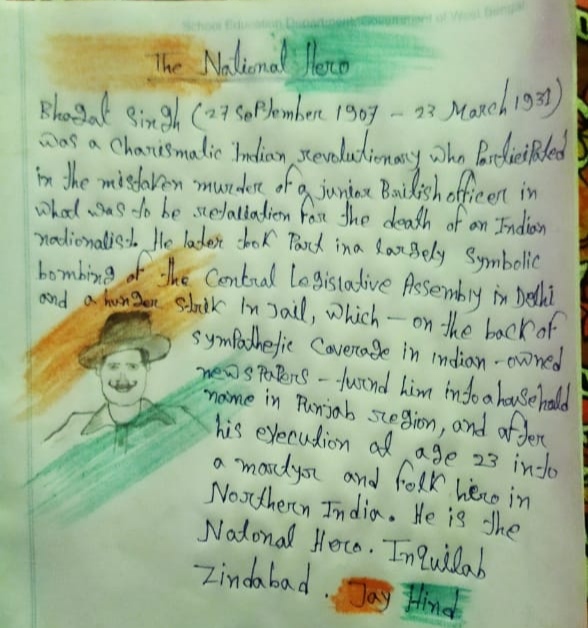 School Education Department, Government of West Bengal
The National Hero
Bhagat Singh (27 September 1907 - 23 March 1931)
was a Charismatic Indian revolutionary who Participated
in the mistaken murder of a junior British officer in
what was to be retaliation for the death of an Indian
nationalist. He later took Part in a largely Symbolic
bombing of the Central Legislative Assembly in Delhi
and a hunger Strik In Jail, which - on the back of
sympathetic Coverage in indian - owned
newspapers - turnd him into a household
name in Punjab region, and after
his execution at age 23 into
a martyr and folk hero in
Northern India. He is the
Natonal Hero. Inquilab
Zindabad. Jay Hind